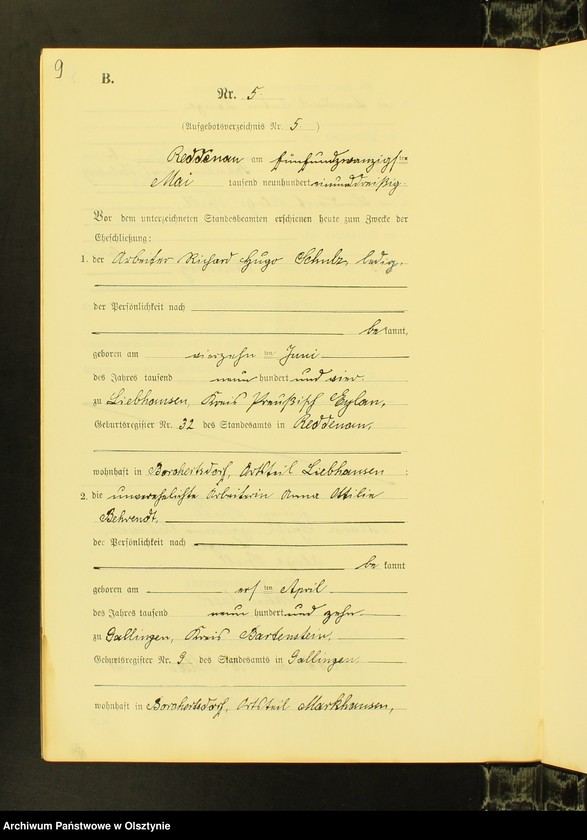 9
B.
Nr. 5
(Aufgebotsverzeichnis Nr. 5.)
Reddenau am fünfundzwanzigsten
Mai tausend neunhundert einunddreißig
Vor dem unterzeichneten Standesbeamten erschienen heute zum Zwecke der
Eheschließung:
1. der Arbeiter Richard Hugo Schulz, ledig,
der Persönlichkeit nach
bekannt,
geboren am vierzehnten Juni
des Jahres tausend neunhundert und vier
zu Liebhausen, Kreis Preußisch Eylau,
Geburtsregister Nr. 32 des Standesamts in Reddenau,
wohnhaft in Borchertsdorf, Ortsteil Liebhausen :
2. die unverehelichte Arbeiterin Anna Ottilie
Behrendt,
der Persönlichkeit nach
bekannt
geboren am ersten April
des Jahres tausend neunhundert und zehn
zu Gallingen, Kreis Bartenstein,
Geburtsregister Nr. 9 des Standesamts in Gallingen
wohnhaft in Borchertsdorf, Ortsteil Markhausen,
Archiwum Państwowe w Olsztynie